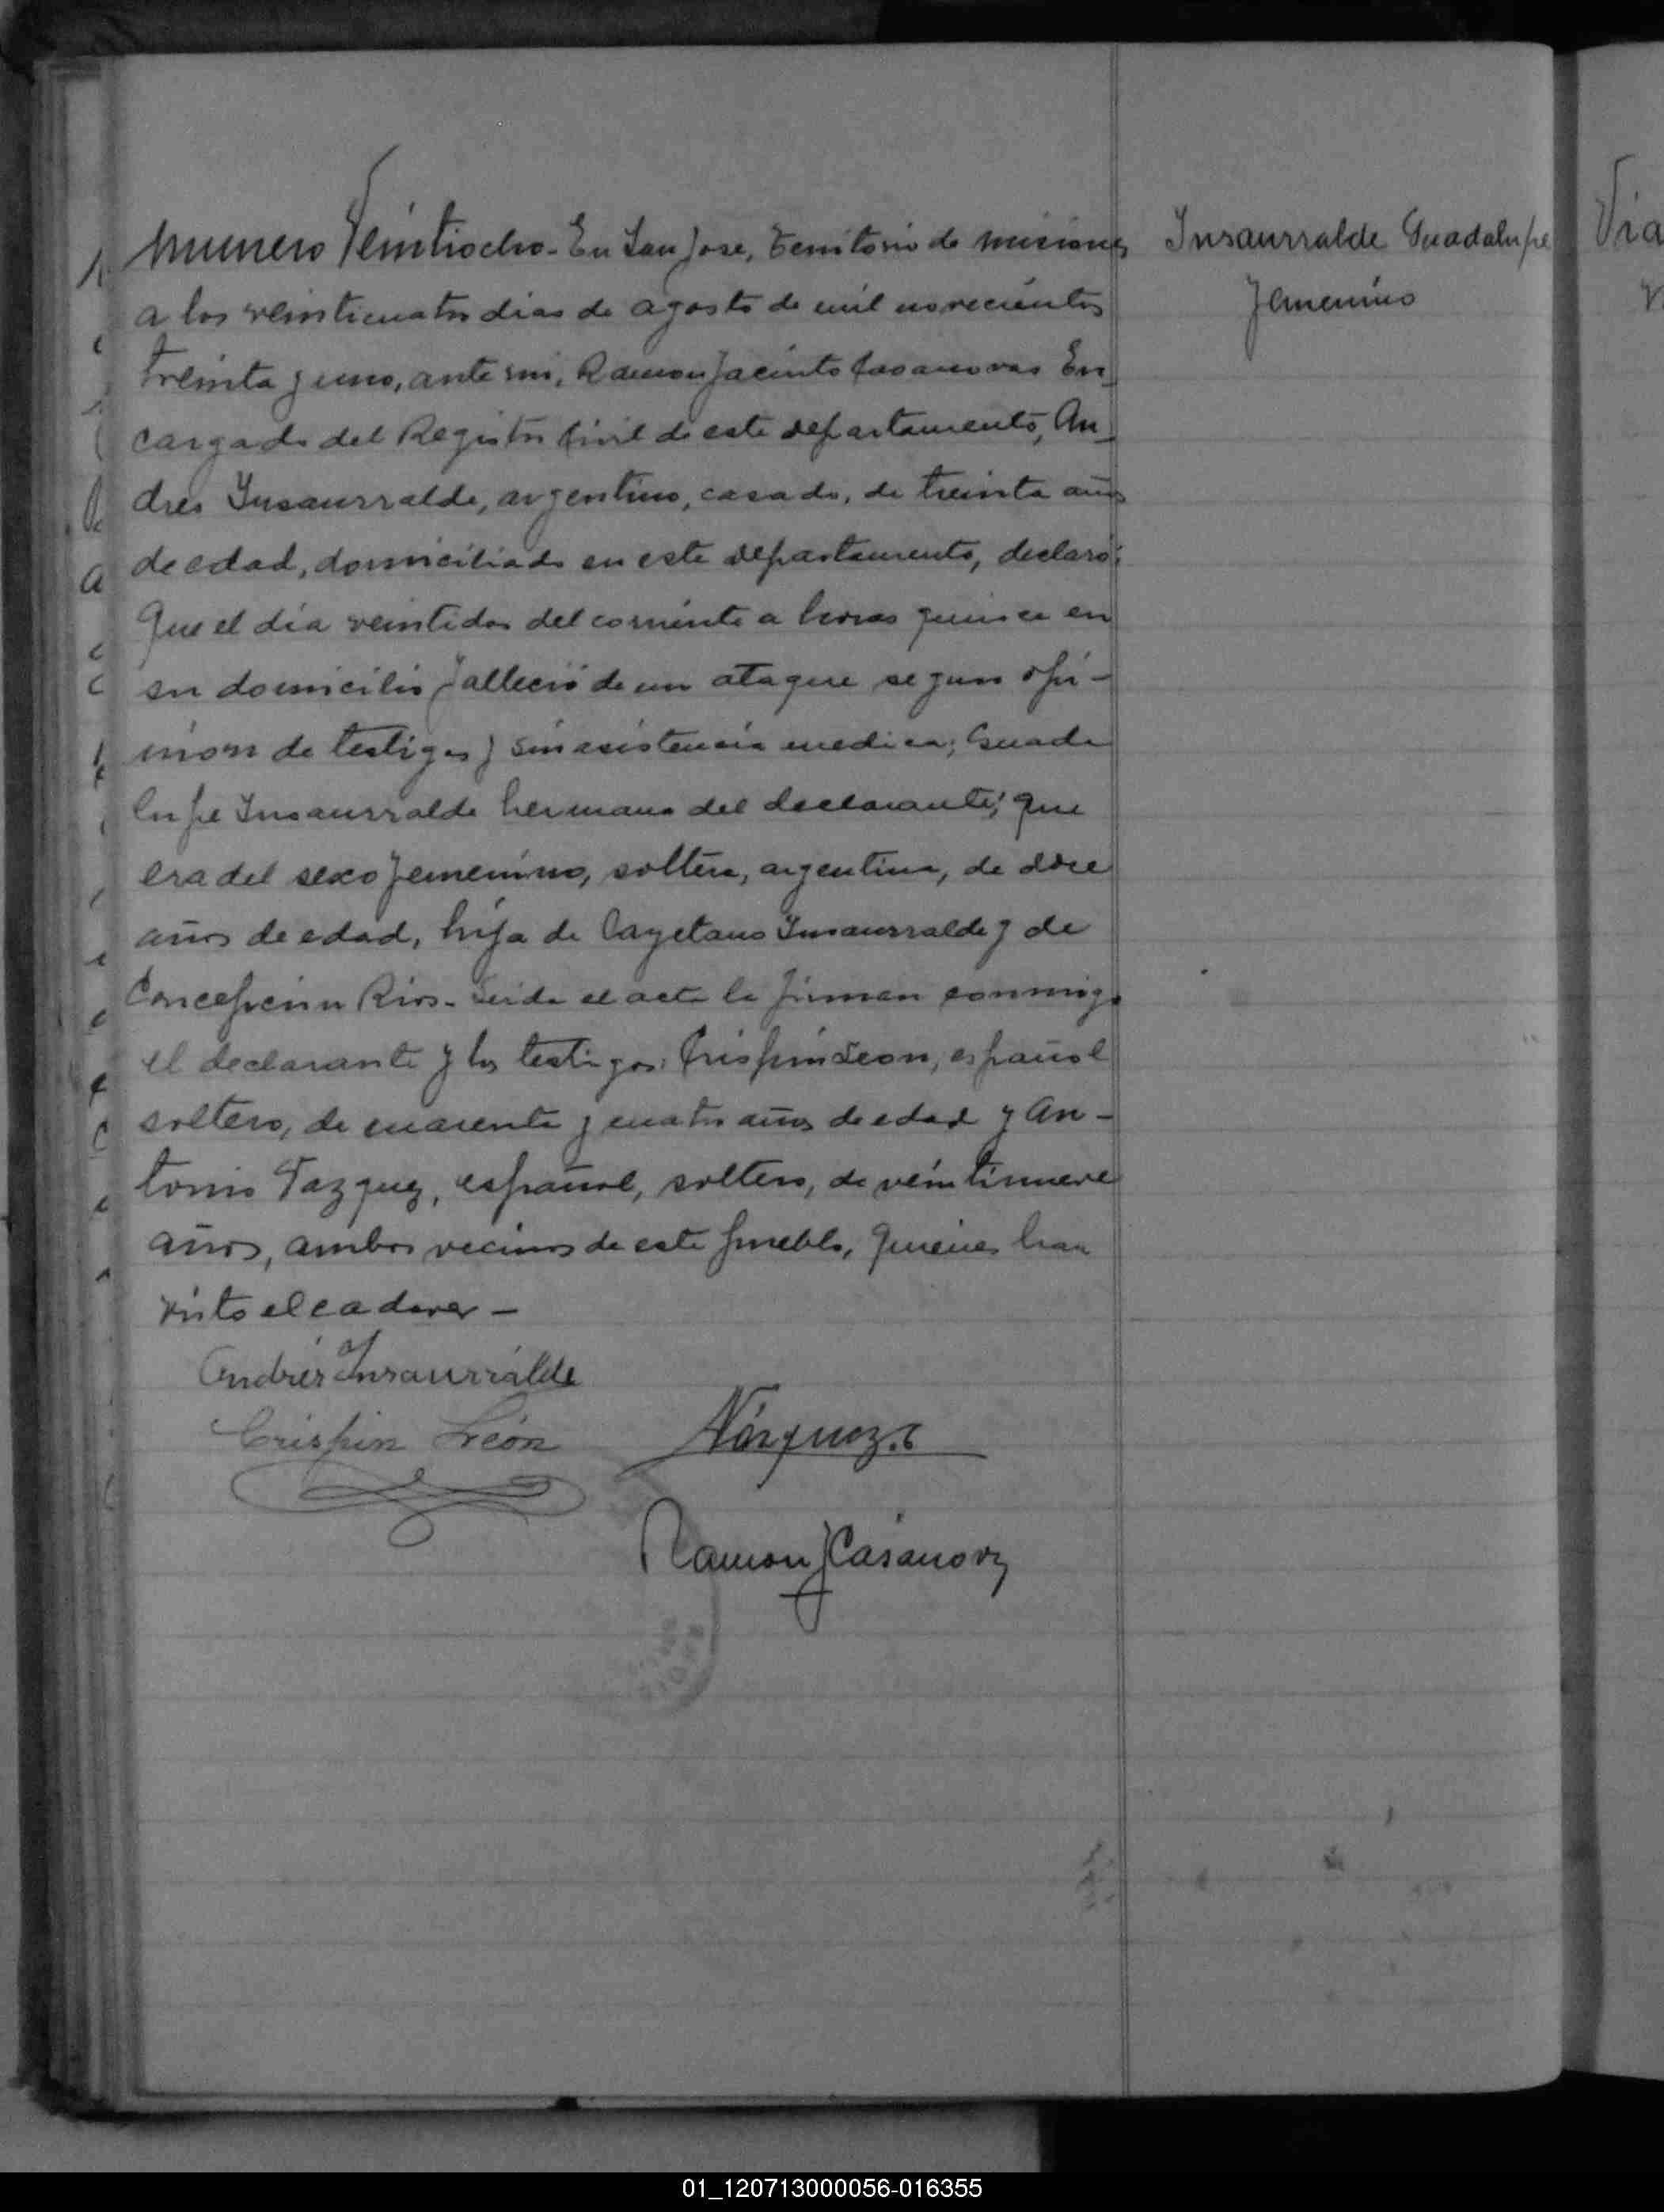 Numero Veintiocho - En San Jose, Territorio de Misiones
a los veinticuatro dias de agosto de mil novecientos
treinta y uno, ante mi, Ramon Jacinto Casanovas En-
cargado del Registro Civil de este departamento, An-
dres Insaurralde, argentino, casado, de treinta años
de edad, domiciliado en este departamento, declaró:
Que el día veintidos del corriente a horas quince en
su domicilio falleció de un ataque segun opi-
nion de testigos y sin asistencia medica; Guada
lupe Insaurralde hermana del declarante; que
era del sexo femenino, soltera, argentina, de doce
años de edad, hija de Cayetano Insaurralde y de
Concepcion Rios - Leida el acta la firman conmigo
el declarante y los testigos: Crispin Leon, español
soltero, de cuarenta y cuatro años de edad y An-
tonio Vazquez, español, soltero, de veintinueve
años, ambos vecinos de este pueblo, quienes han
visto el cadaver -
Andrés Insaurralde
Crispin León
Vázquez
Ramon J Casanovas
Insaurralde Guadalupe
Femenino
Via
01_120713000056-016355